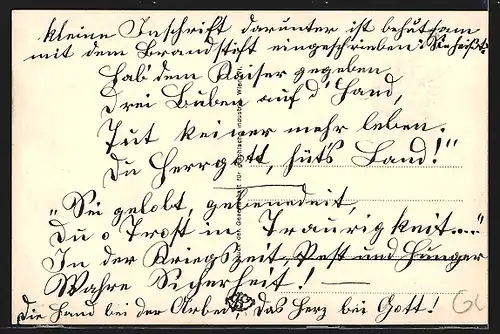 kleine Inschrift darunter ist behutsam
mit dem Brandstift eingeschrieben. Sie heißt:
Hab' dem Kaiser gegeben
Drei Buben auf d' Hand,
Tut keiner mehr leben.
Du Herrgott, hüt's Land!"
"Sei gelobt, gebenedeit,
Du o Trost in Traurigkeit..."
In der Kriegszeit Pest und Hunger
Wahre Sicherheit! —
Die Hand bei der Arbeit, Das Herz bei Gott!